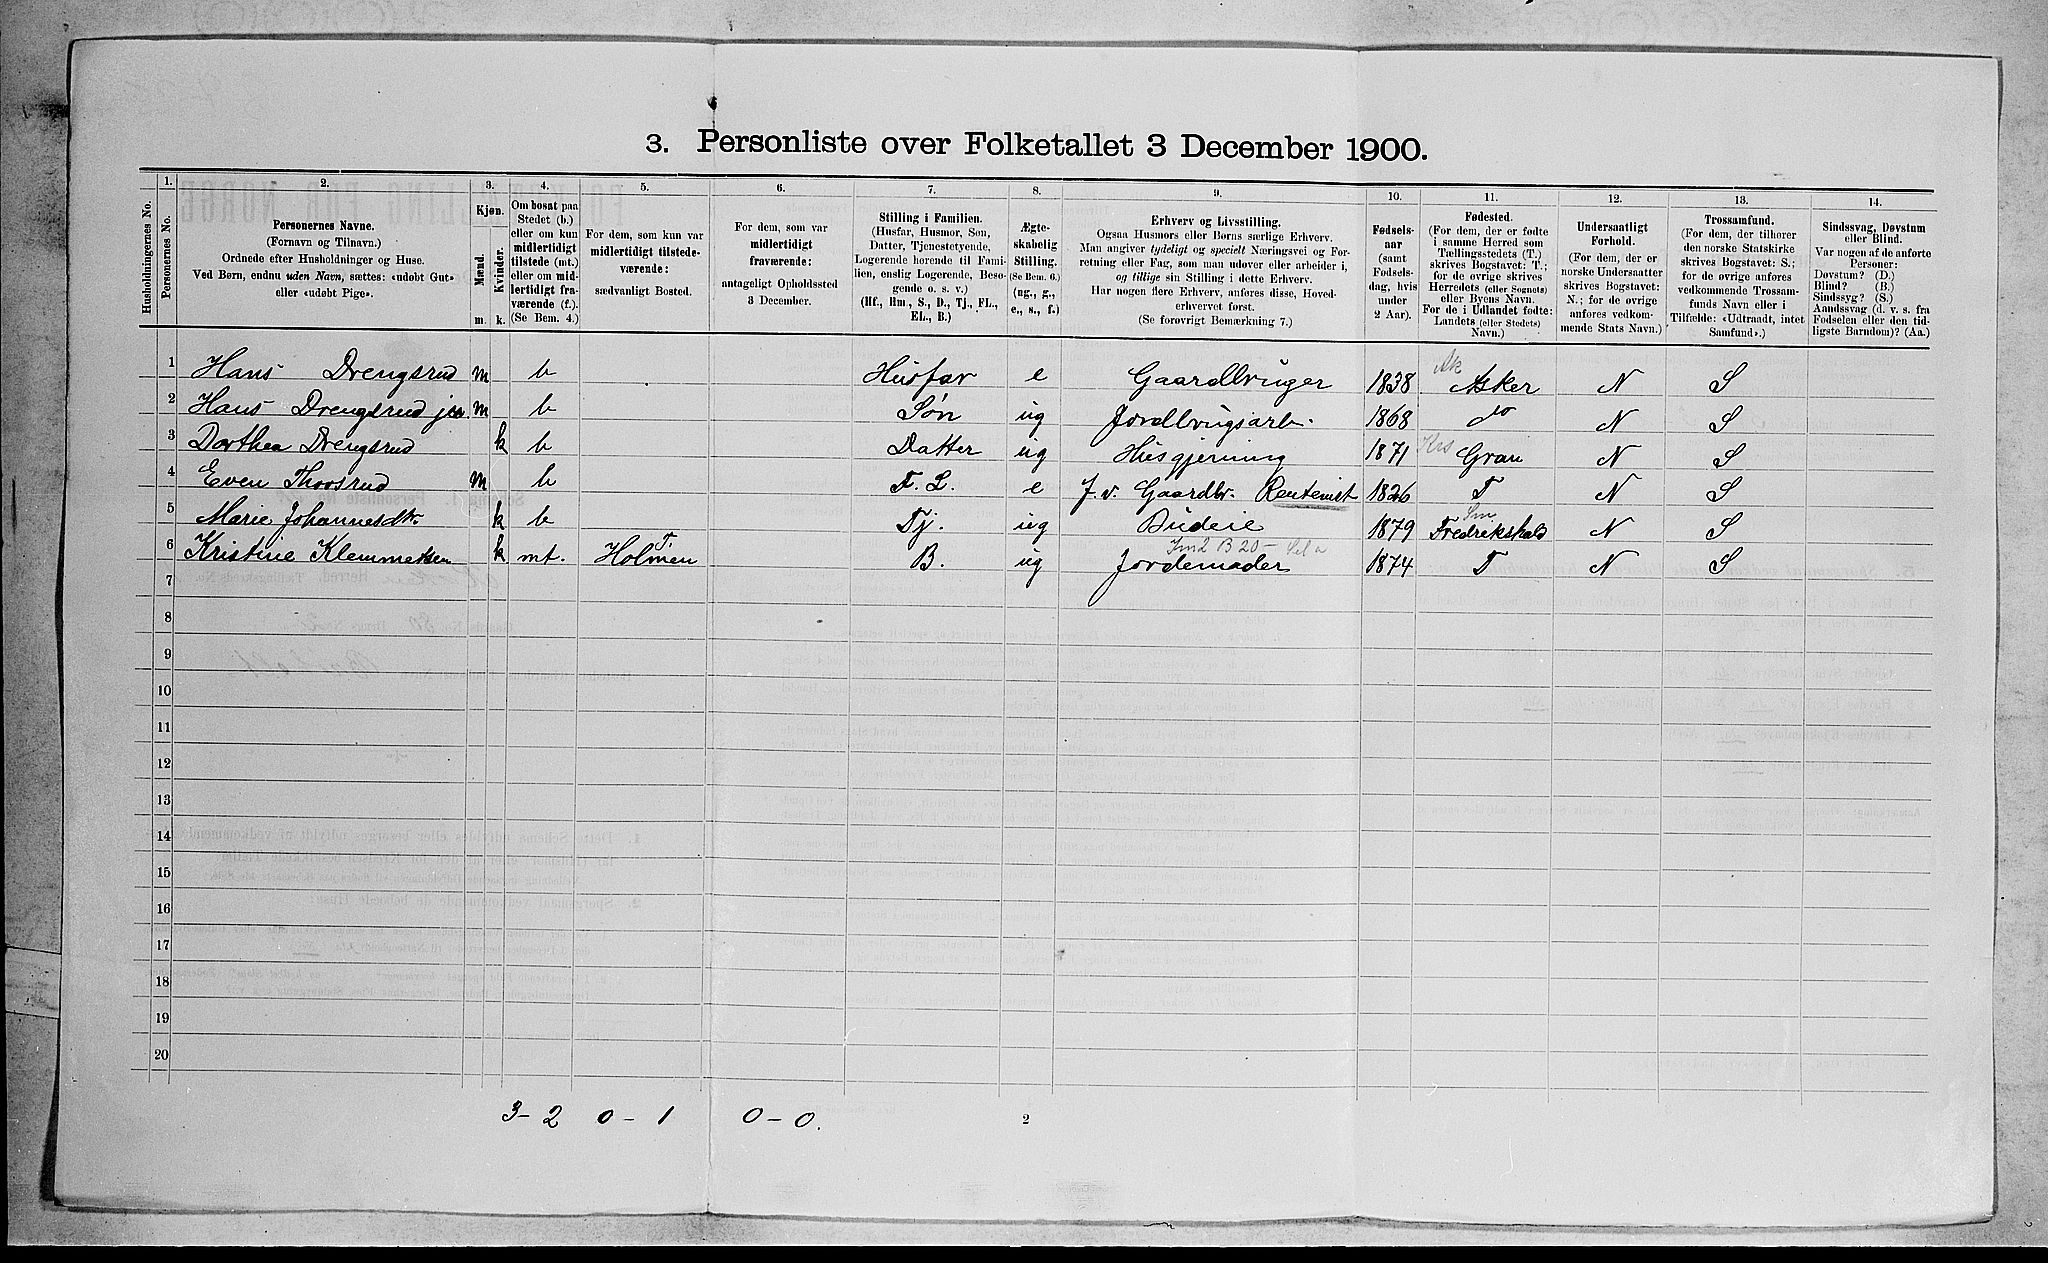 3. Personliste over Folketallet 3 December 1900.
Husholdningernes No.
1.
Personernes No.
2.
Personernes Navne.
(Fornavn og Tilnavn.)
Ordnede efter Husholdninger og Huse.
Ved Børn, endnu uden Navn, sættes: «udøbt Gut»
eller «udøbt Pige».
3.
Kjøn.
Mænd.
Kvinder.
m. k.
4.
Om bosat paa
Stedet (b.)
eller om kun
midlertidigt
tilstede (mt.)
eller om mid-
lertidigt fra-
værende (f.).
(Se Bem. 4.)
5.
For dem, som kun var
midlertidigt tilstede-
værende:
sædvanligt Bosted.
6.
For dem, som var
midlertidigt
fraværende:
antageligt Opholdssted
3 December.
7.
Stilling i Familien.
(Husfar, Husmor, Søn,
Datter, Tjenestetyende,
Logerende hørende til Fami-
lien, enslig Logerende, Besø-
gende o. s. v.)
(Hf., Hm., S., D., Tj., FL.,
EL., B.)
8.
Ægte-
skabelig
Stilling.
(Se Bem. 6.)
(ug., g.,
e., s., f.)
9.
Erhverv og Livsstilling.
Ogsaa Husmors eller Børns særlige Erhverv.
Man angiver tydeligt og specielt Næringsvei og For-
retning eller Fag, som man udøver eller arbeider i,
og tillige sin Stilling i dette Erhverv.
Har nogen flere Erhverv, anføres disse, Hoved-
erhvervet først.
(Se forøvrigt Bemærkning 7.)
10.
Fødsels-
aar
(samt
Fødsels-
dag, hvis
under
2 Aar).
11.
Fødested.
(For dem, der er fødte
i samme Herred som
Tællingsstedets (T.)
skrives Bogstavet: T.;
for de øvrige skrives
Herredets (eller Sognets)
eller Byens Navn.
For de i Udlandet fødte:
Landets (eller Stedets)
Navn.)
12.
Undersaatligt
Forhold.
(For dem, der er
norske Undersaatter
skrives Bogstavet:
N.; for de øvrige
anføres vedkom-
mende Stats Navn.)
13.
Trossamfund.
(For dem, der tilhører
den norske Statskirke
skrives Bogstavet: S.;
for de øvrige anføres
vedkommende Trossam-
funds Navn eller i
Tilfælde: «Udtraadt, intet
Samfund».)
14.
Sindssvag, Døvstum
eller Blind.
Var nogen af de anførte
Personer:
Døvstum? (D.)
Blind? (B.)
Sindssyg? (S.)
Aandssvag (d. v. s. fra
Fødselen eller den tid-
ligste Barndom)? (Aa.)
1 Hans Drengsrud m b Husfar e Gaardbruger 1838 Ak Asker N S
2 Hans Drengsrud jun m b Søn ug Jordbrugsarb. 1868 do N S
3 Dorthea Drengsrud k b Datter ug Husgjerning 1871 Gran N S
4 Even Thoosrud m b F. L. e F. v. Gaardbr. Rentenist 1826 T N S
5 Marie Johannesdtr. k b Tj. ug Budeie 1879 Sm Fredrikshald N S
6 Kristine Klemmetsen k mt. Holmen T B. ug Jordemoder 1874 T N S
7
8
9
10
11
12
13
14
15
16
17
18
19
20
3-2 0-1 0-0.
2